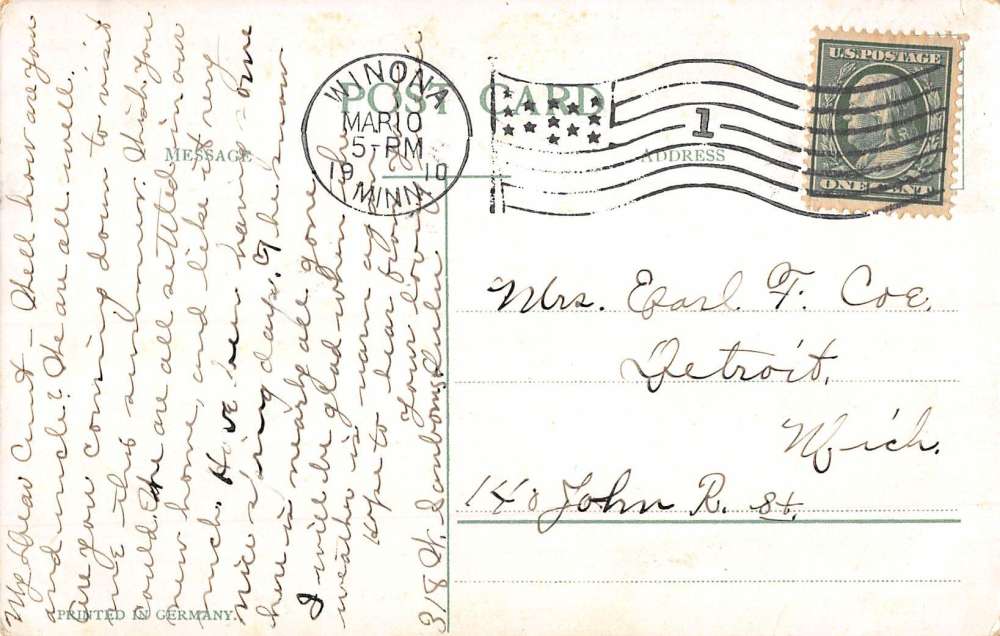 POST CARD
MESSAGE
ADDRESS
WINONA
MAR 10
5-PM
19 10
MINN.
1
U.S. POSTAGE
ONE CENT
My Dear Aunt – Well how are you
and uncle? We are all well.
Are you coming down to visit
me this summer. Wish you
could. We are all settled in our
new home, and like it very
much. Have been having some
nice spring days. The snow
here is nearly all gone,
I will be glad when the
weather is warm
Hope to hear from
Your loving
318 W. Sanborn
Mrs. Earl F. Coe.
Detroit,
Mich.
140 John R. St.
PRINTED IN GERMANY.